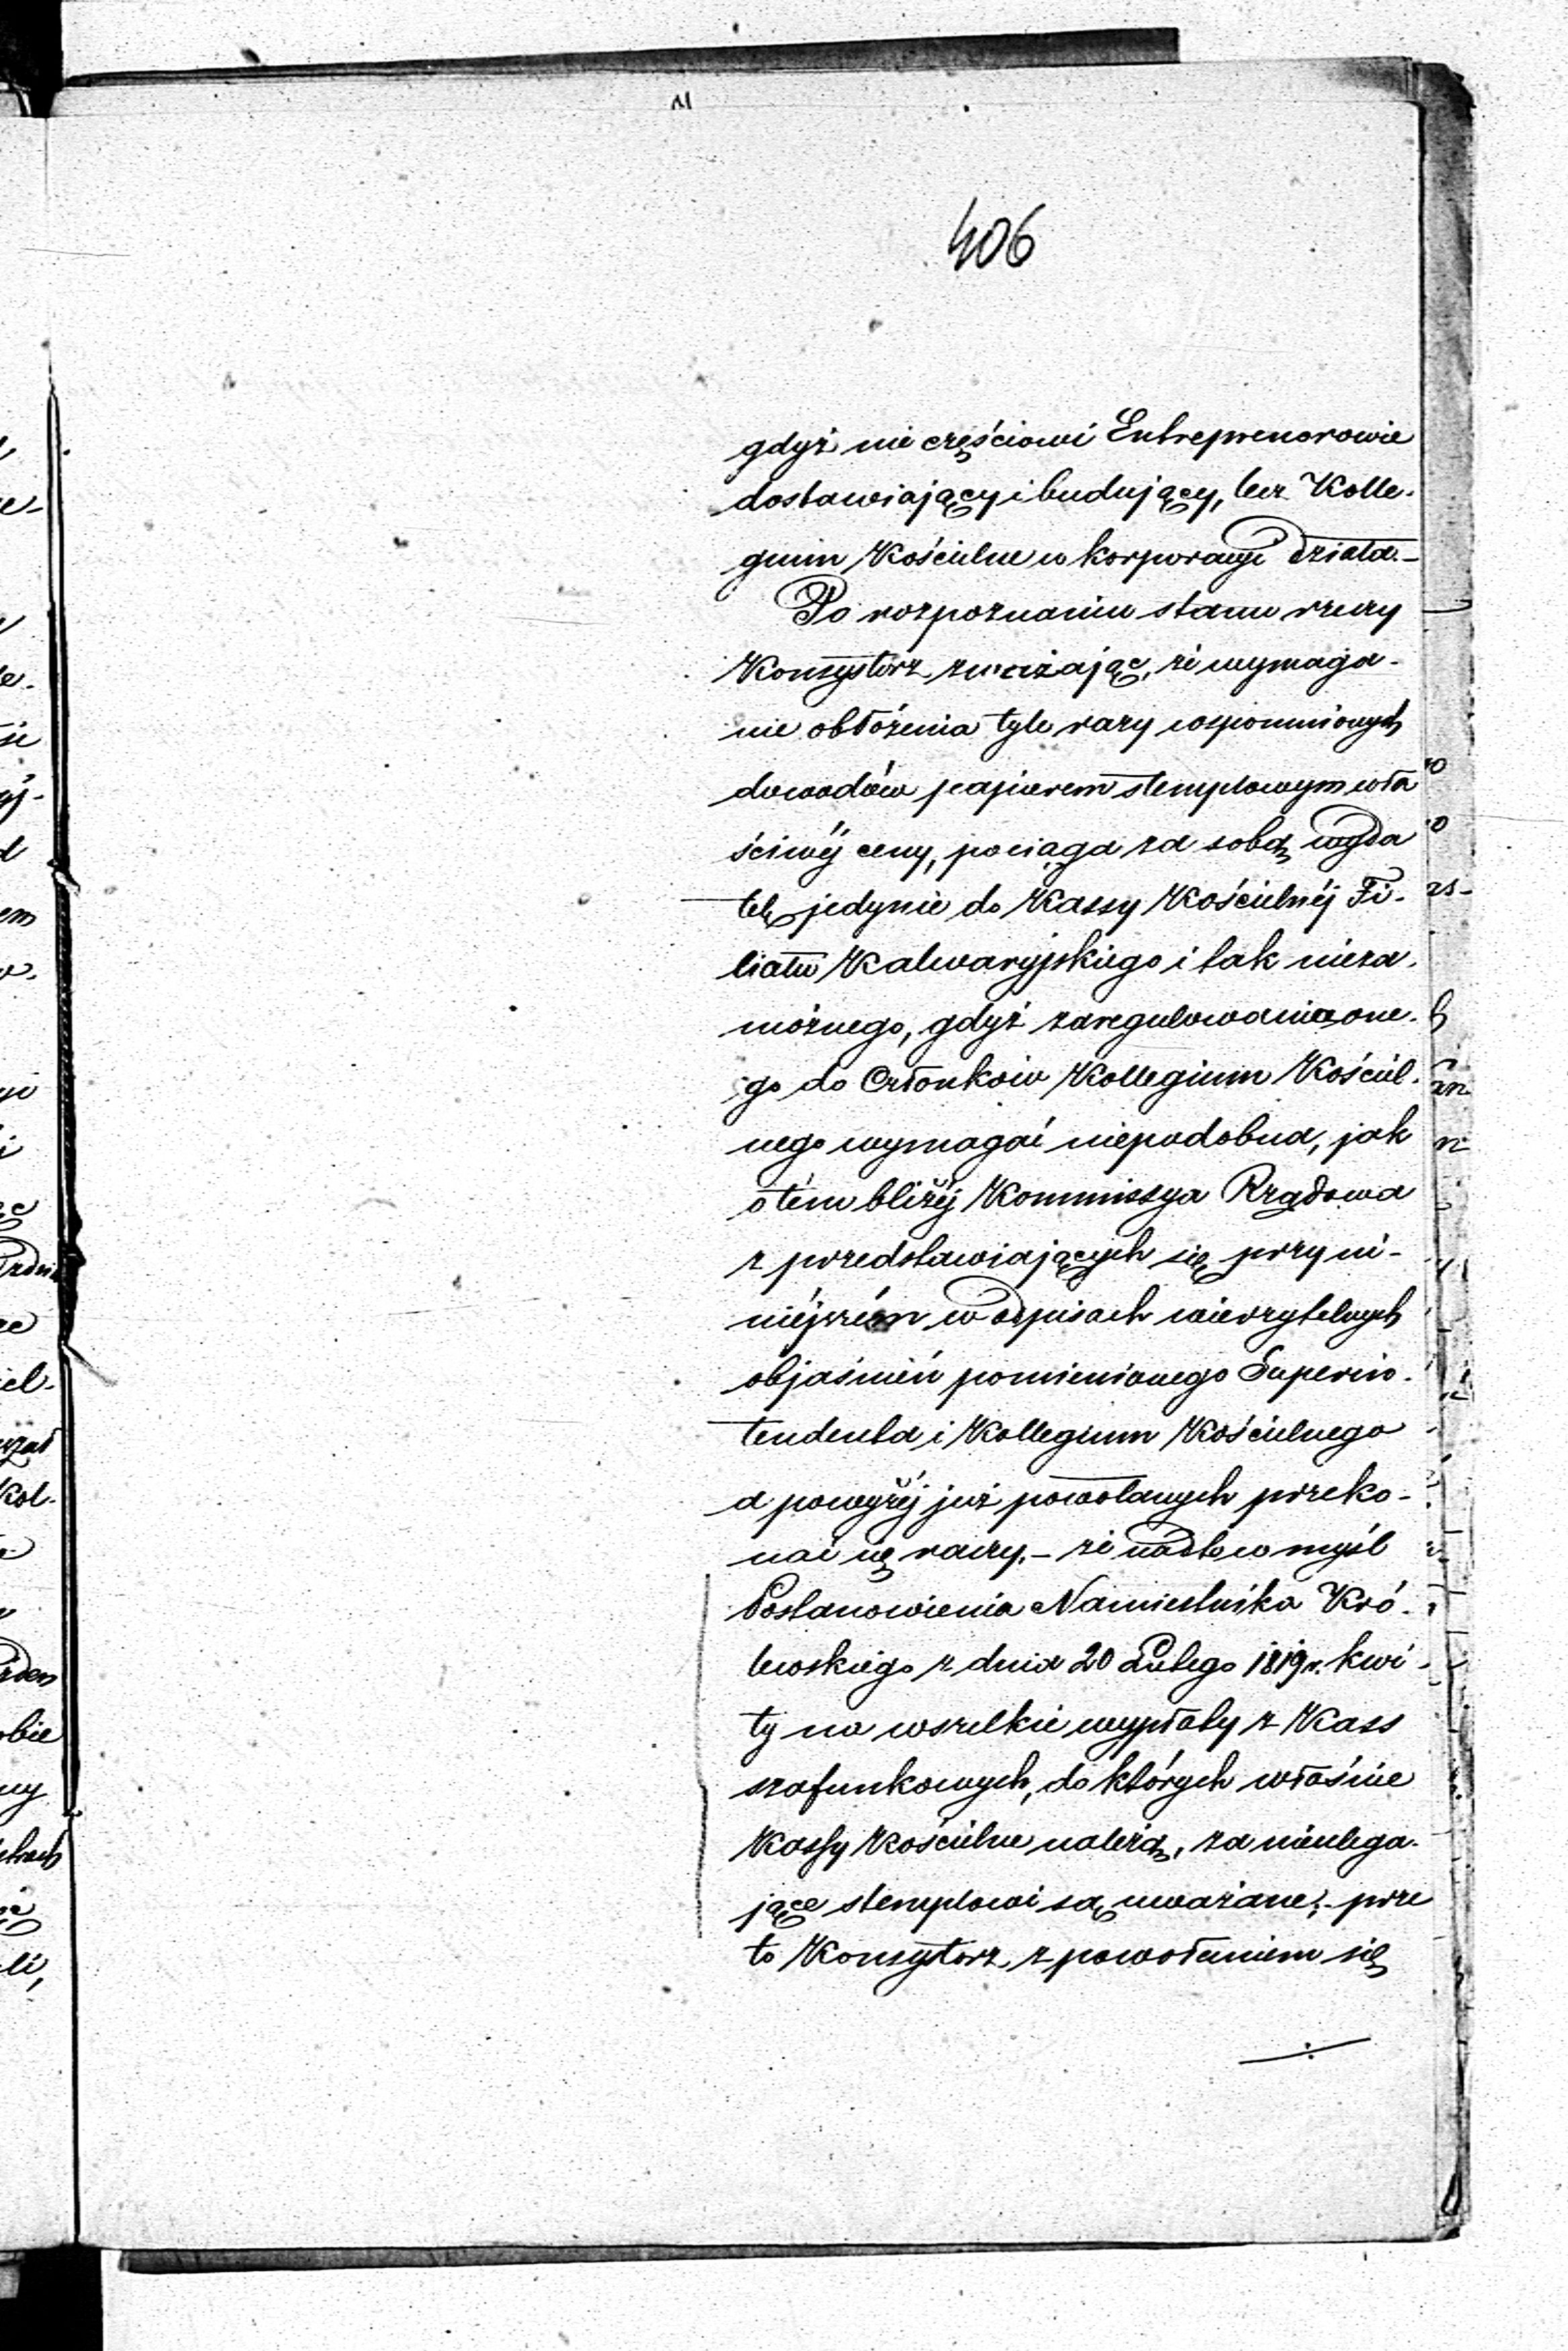 406
gdyż nie częściowi Entreprenorowie
dostawiający i budujący, lecz Kolle-
gium Kościelne w korporacyi działa.-
Po rozpoznaniu stanu rzeczy
Konsystorz zważając, że wymaga-
nie obłożenia tyle razy wspomnionych
dowodów papierem stemplowym wła
ściwéj ceny, pociąga za sobą wyda
tek jedynie do Kassy Kościelnéj Fi-
liału Kalwaryjskiego i tak nieza-
możnego, gdyż zaregulowania one-
go do Członków Kollegium Kościel-
nego wymagać niepodobna, jak
o tém bliżéj Kommissya Rządowa
z przedstawiających się przy ni-
niéjszém w odpisach wierzytelnych
objaśnień pomienionego Superin-
tendenta i Kollegium Kościelnego
a powyżéj już powołanych przeko-
nać się raczy.- że nadto w myśl
Postanowienia Namiestnika Kró-
lewskiego z dnia 20 Lutego 1819 r. kwi-
ty na wszelkie wypłaty z Kass
szafunkowych, do których właśnie
Kassy Kościelne należą, za nieulega-
jące stemplowi są uważane;- prze
to Konsystorz z powołaniem się